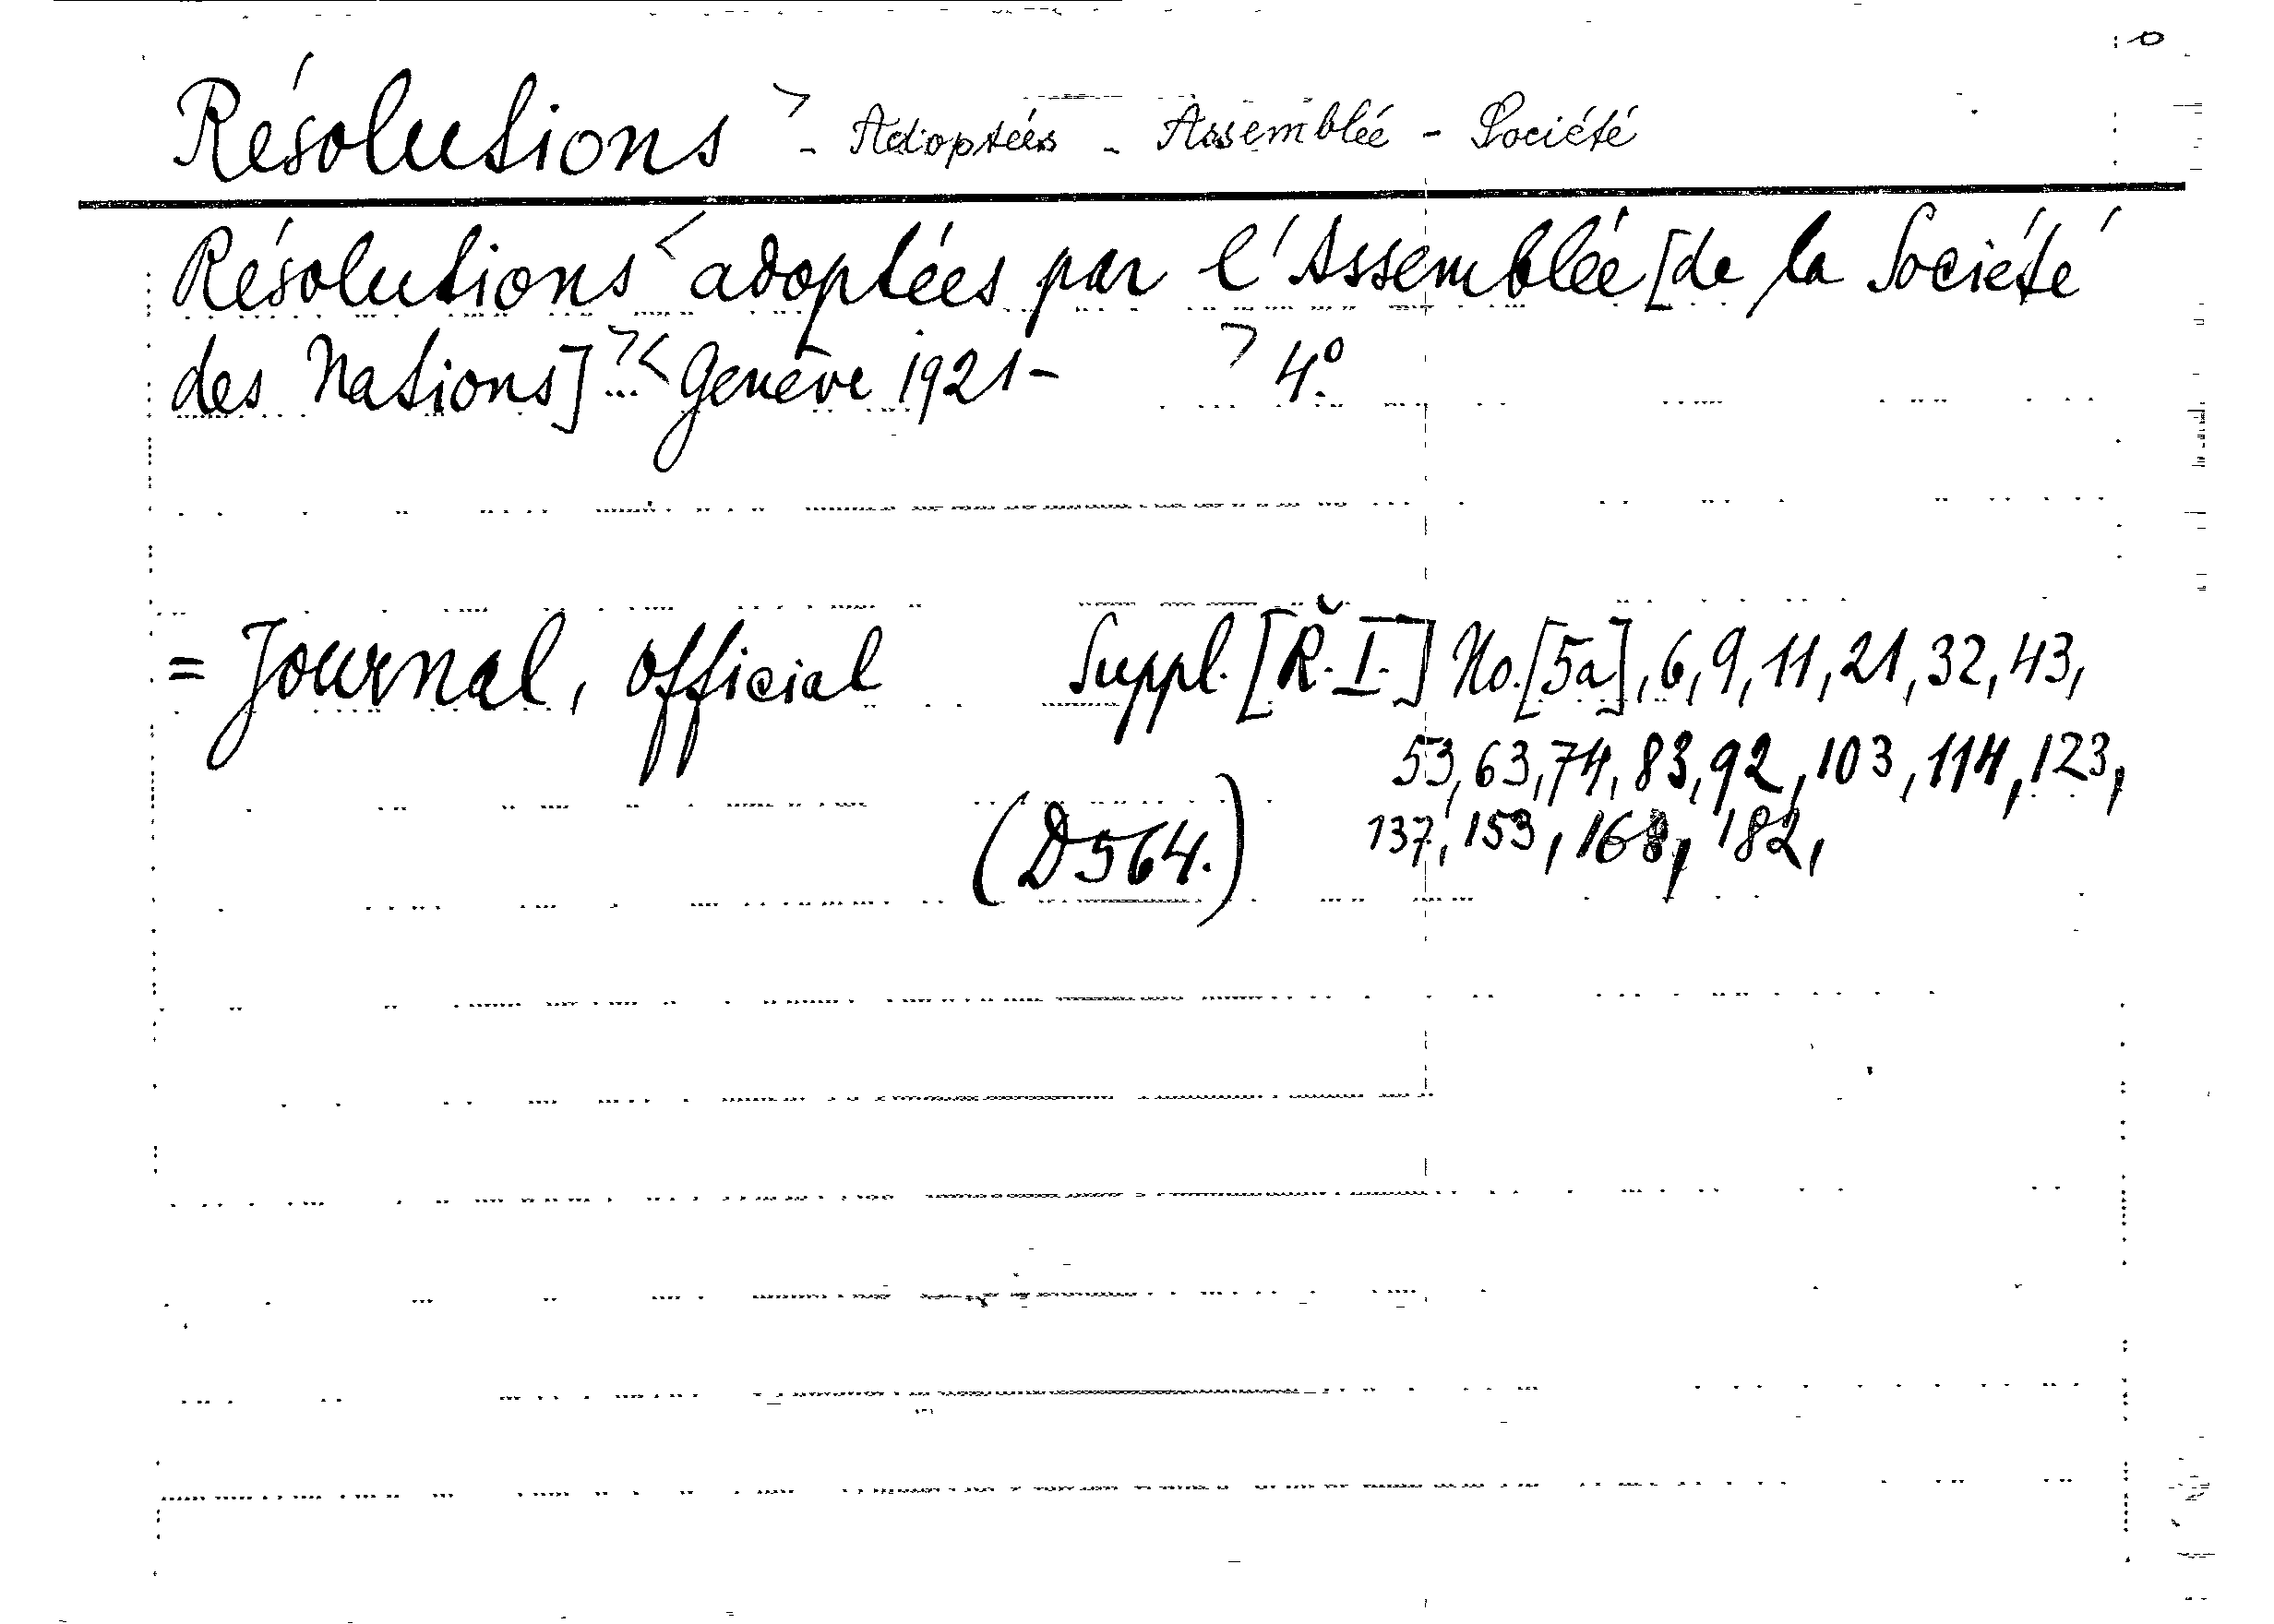 Résolutions > - Adoptées - Assemblée - Société
Résolutions < adoptées par l'Assemblée [de la Société
des Nations] > < Genève 1921- > 4°.
= Journal, official Suppl. [Ř. I.] No. [5a], 6, 9, 11, 21, 32, 43,
53, 63, 74, 83, 92, 103, 114, 123,
(D564.) 137, 153, 168, 182,